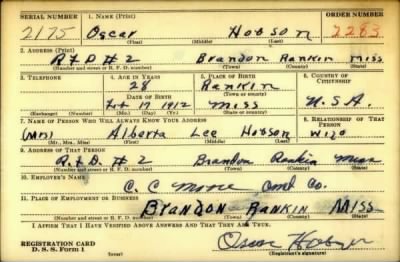 SERIAL NUMBER 1. NAME (Print) ORDER NUMBER
2175 Oscar Hobson 2283
(First) (Middle) (Last)
2. ADDRESS (Print)
R.F.D #2 Brandon Rankin Miss
(Number and street or R. F. D. number) (Town) (County) (State)
3. TELEPHONE 4. AGE IN YEARS 5. PLACE OF BIRTH 6. COUNTRY OF CITIZENSHIP
28 Rankin
DATE OF BIRTH (Town or county)
Feb 17 1912 Miss U.S.A.
(Exchange) (Number) (Mo.) (Day) (Yr.) (State or country)
7. NAME OF PERSON WHO WILL ALWAYS KNOW YOUR ADDRESS 8. RELATIONSHIP OF THAT PERSON
(Mrs) Alberta Lee Hobson Wife
(Mr., Mrs., Miss) (First) (Middle) (Last)
9. ADDRESS OF THAT PERSON
R.F.D. #2 Brandon Rankin Miss
(Number and street or R. F. D. number) (Town) (County) (State)
10. EMPLOYER'S NAME
C. C. Moore Co.
11. PLACE OF EMPLOYMENT OR BUSINESS
Brandon Rankin Miss
(Number and street or R. F. D. number) (Town) (County) (State)
I AFFIRM THAT I HAVE VERIFIED ABOVE ANSWERS AND THAT THEY ARE TRUE.
REGISTRATION CARD
D. S. S. Form 1 Oscar Hobson
(Registrant's signature)